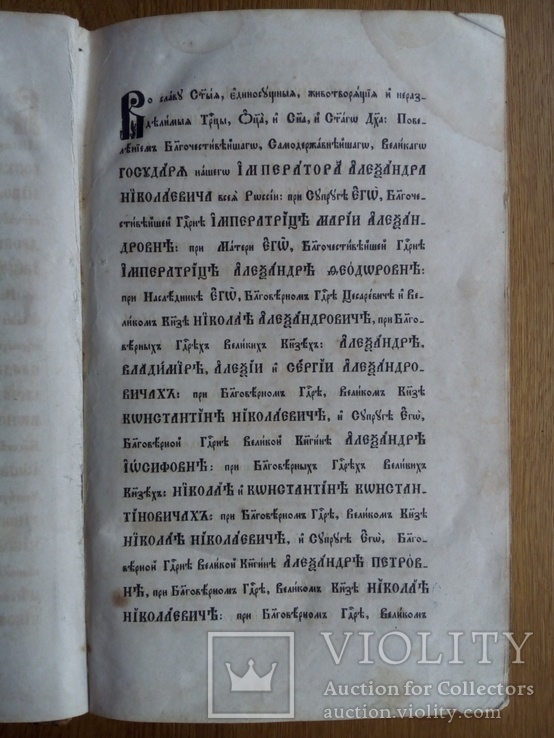 Во славу Ст҃ыѧ, є҆диносꙋщныѧ, животворѧщїѧ и҆ нераз-
дѣлимыѧ Трⷪ҇цы, Ѻ҆ц҃а̀, и҆ Сн҃а, и҆ Ст҃а́гѡ Дх҃а: Пове-
лѣ́нїемъ Бл҃гочестивѣ́йшагѡ, Самодержа́внѣйшагѡ, Вели́кагѡ
ГОСꙊДА́РѦ на́шегѡ І҆МПЕРА́ТОРА А҆ЛЕѮА́НДРА
НІКОЛА́ЕВИЧА всеѧ̀ Рѡссі́и: при Сꙋпрꙋ́гѣ Є҆гѡ̀, Бл҃гоче-
сти́вѣйшей Гдⷭ҇рнѣ І҆МПЕРАТРІ́ЦѢ МАРІ́И А҆ЛЕѮА́Н-
ДРОВНѢ: при Ма́тери Є҆гѡ̀, Бл҃гочести́вѣйшей Гдⷭ҇рнѣ
І҆МПЕРАТРІ́ЦѢ А҆ЛЕѮА́НДРѢ Ѳ҆ЕО́ДѠРОВНѢ:
при Наслѣ́дникѣ Є҆гѡ̀, Бл҃говѣ́рномъ Гдⷭ҇рѣ Цесаре́вичѣ и҆ Ве-
ли́комъ Кн҃зѣ НІКОЛА́Ѣ А҆ЛЕѮА́НДРОВИЧѢ, при Бл҃го-
вѣ́рныхъ Гдⷭ҇рѣхъ Вели́кихъ Кн҃зѣхъ: А҆ЛЕѮА́НДРѢ,
ВЛАДИ́МІРѢ, А҆ЛЕѮІ́И и҆ СЕ́РГІИ А҆ЛЕѮА́НДРО-
ВИЧАХЪ: при Бл҃говѣ́рномъ Гдⷭ҇рѣ, Вели́комъ Кн҃зѣ
КѠНСТАНТІ́НѢ НІКОЛА́ЕВИЧѢ, и҆ Сꙋпрꙋ́гѣ Є҆гѡ̀,
Бл҃говѣ́рной Гдⷭ҇рнѣ Вели́кой Кн҃ги́нѣ А҆ЛЕѮА́НДРѢ
І҆Ѡ́СИФОВНѢ: при Бл҃говѣ́рныхъ Гдⷭ҇рѣхъ Вели́кихъ
Кн҃зѣхъ: НІКОЛА́Ѣ и҆ КѠНСТАНТІ́НѢ КѠНСТАН-
ТІ́НОВИЧАХЪ: при Бл҃говѣ́рномъ Гдⷭ҇рѣ, Вели́комъ Кн҃зѣ
НІКОЛА́Ѣ НІКОЛА́ЕВИЧѢ, и҆ Сꙋпрꙋ́гѣ Є҆гѡ̀, Бл҃го-
вѣ́рной Гдⷭ҇рнѣ Вели́кой Кн҃ги́нѣ А҆ЛЕѮА́НДРѢ ПЕТРО́В-
НѢ, при Бл҃говѣ́рномъ Гдⷭ҇рѣ, Вели́комъ Кн҃зѣ НІКОЛА́Ѣ
НІКОЛА́ЕВИЧѢ: при Бл҃говѣ́рномъ Гдⷭ҇рѣ, Вели́комъ
VIOLITY
Auction for Collectors
auction.violity.com